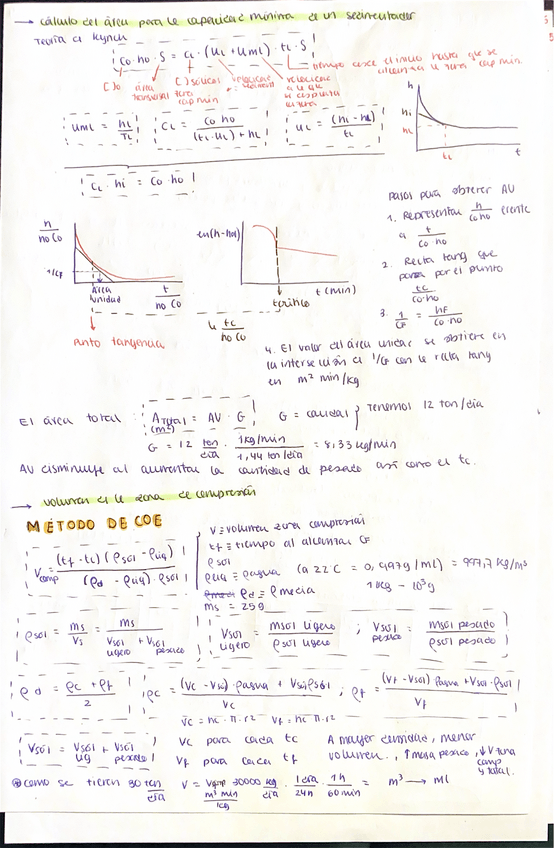 → cálculo del área para la capacidad mínima de un sedimentador
Teoría de Kynch
Co·ho·S = CL·(UL+UmL)·tL·S
tiempo desde el inicio hasta que se alcanza la zona cap mín.
[ ]o
área transversal
[ ] sólidos zona cap mín
velocidad
velocidad a la que se
UmL = hL/TL
CL = Co ho / ((tL·UL) + hL)
UL = (hi - hL)/tL
h
hi
hL
tL
t
CL·hi = Co·ho
h / ho Co
1/CF
Área unidad
t / ho Co
Punto tangencia
ln(h-h∞)
t (min)
tcrítico
↳ tc / ho Co
Pasos para obtener AU
1. Representar h/Co·ho frente a t/Co·ho
2. Recta tang que pasa por el punto tc/Co·ho
3. 1/CF = hF/Co·ho
4. El valor del área unidad se obtiene en
la intersección de 1/CF con la recta tang
en m² min/kg
El área total: ATOTAL = AU · G
(m²)
G = caudal } Tenemos 12 ton/día
G = 12 ton/día · 1kg/min / 1,44 ton/día = 8,33 kg/min
AU disminuye al aumentar la cantidad de pesado así como el tc.
→ volumen de la zona de compresión
MÉTODO DE COE
Vcomp = (tf - tc)(ρsól - ρliq) / (ρd - ρliq)·ρsól
V ≡ volumen zona compresión
tf ≡ tiempo al alcanzar CF
ρsol
ρliq ≡ ρagua (a 22°C = 0,9979/ml) = 997,7 kg/m³
ρd ≡ ρmedia
1kg - 10³g
ms = 25g
ρsól = ms/Vs = ms / Vsól ligero + Vsól pesado
Vsól ligero = msól ligero / ρsól ligero ; Vsól pesado = msól pesado / ρsól pesado
ρd = ρc + ρf / 2
ρc = (Vc - Vsól)·ρagua + Vsól·ρsól / Vc ; ρf = (Vf - Vsól) ρagua + Vsól·ρsól / Vf
Vc = hc·π·r² Vf = hc·π·r²
Vsól = Vsól lig + Vsól pesado
Vc para cada tc
Vf para cada tf
A mayor densidad, menor
volumen., ↑ masa pesado, ↓ V zona comp y total.
⊛ como se tienen 30 ten/día V = Vcomp 30000 kg/día · 1 día/24h · 1h/60 min = m³ → ml
m³ min / kg